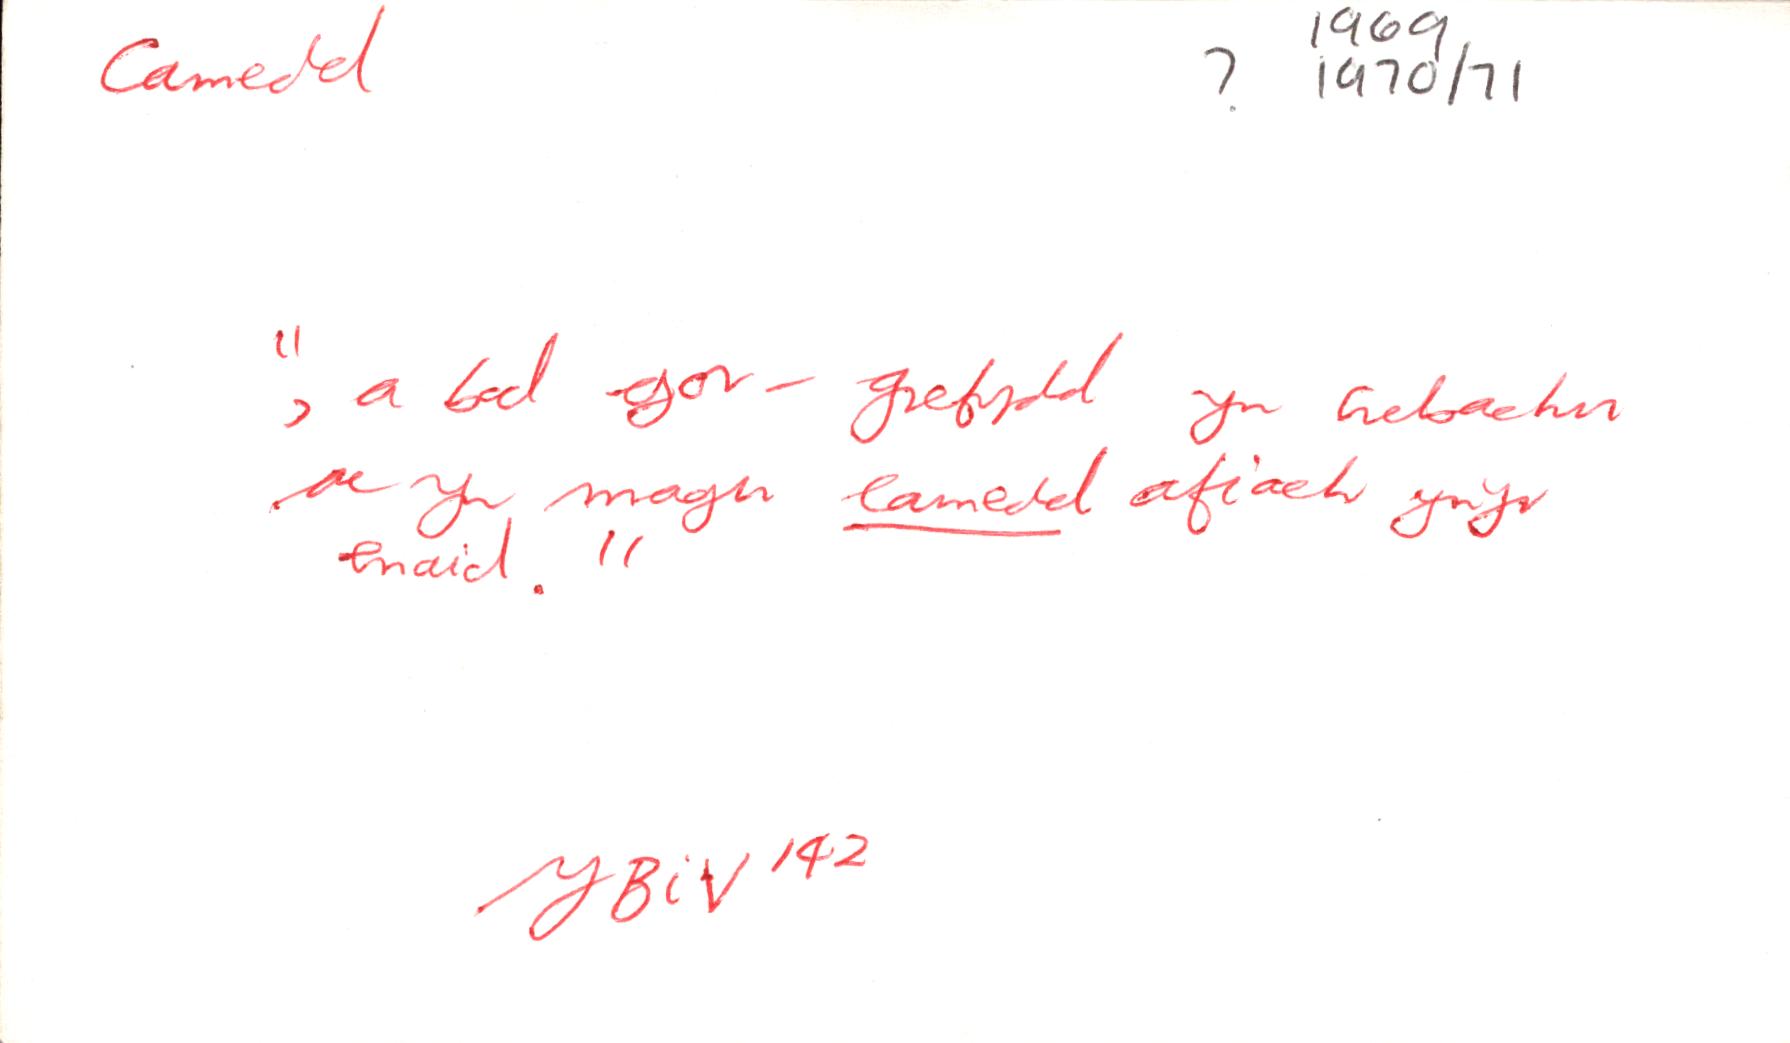 Camedd
1969
? 1970/71
", a bod gor-grefydd yn crebachu
ac yn magu camedd afiach yn yr
enaid."
YBiV 142